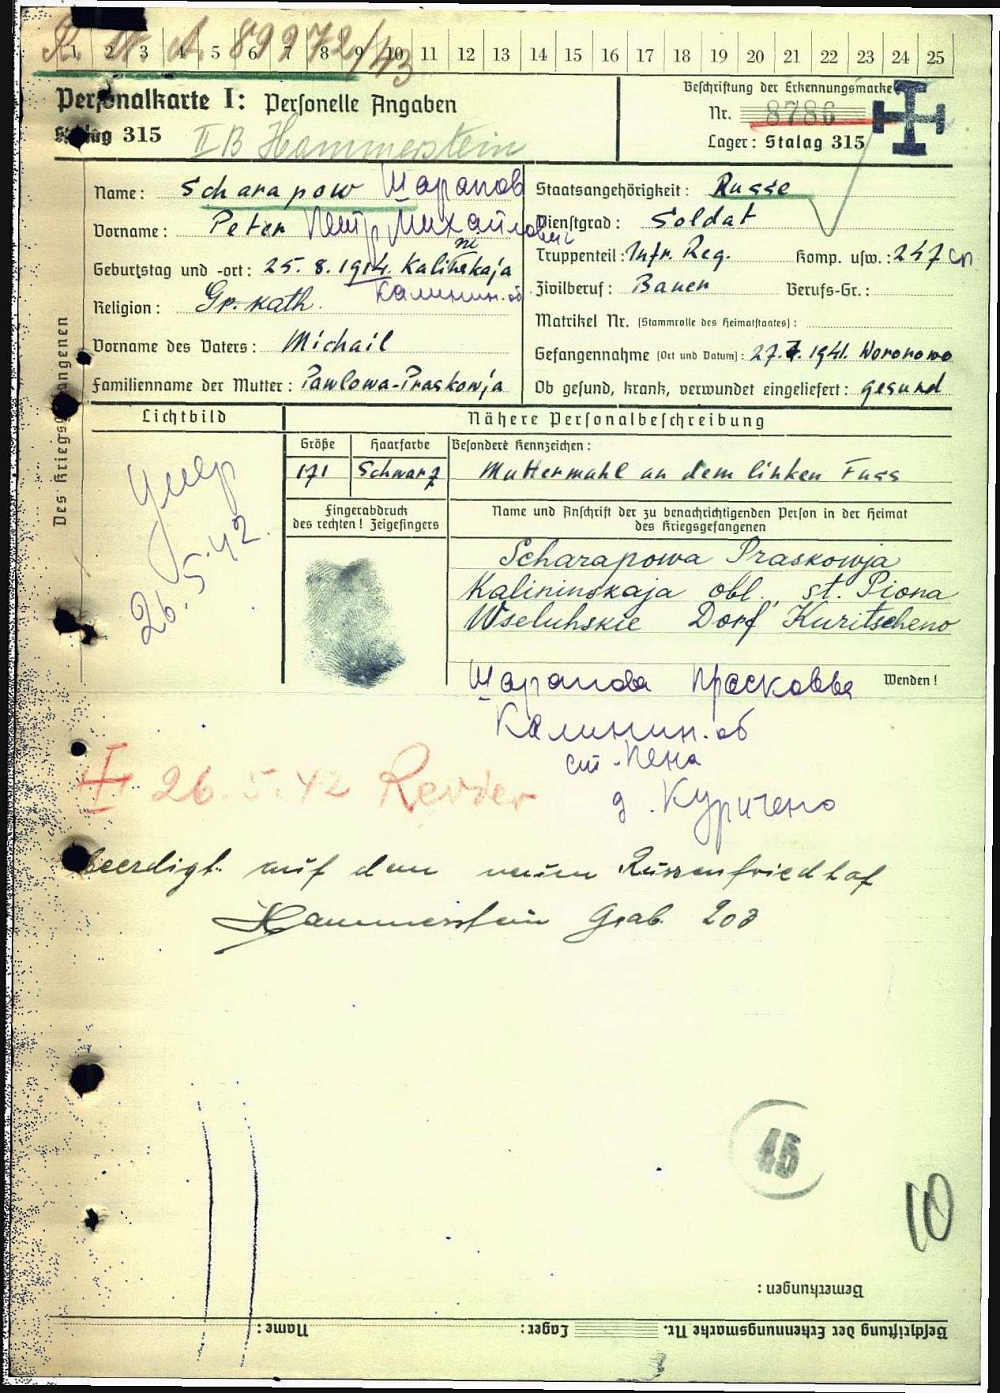 R. W. A. 89972/43
1 2 3 4 5 6 7 8 9 10 11 12 13 14 15 16 17 18 19 20 21 22 23 24 25
Personalkarte I: Personelle Angaben
Stalag 315
II B Hammerstein
Beschriftung der Erkennungsmarke
Nr. 8786
Lager: Stalag 315
Des Kriegsgefangenen
Name: Scharapow Шарапов
Vorname: Peter Петр Михайлович
Geburtstag und -ort: 25. 8. 1914. Kalininskaja
Калинин. об
Religion: Gr. kath.
Vorname des Vaters: Michail
Familienname der Mutter: Pawlowa-Praskowja
Staatsangehörigkeit: Russe
Dienstgrad: Soldat
Truppenteil: Infr. Reg. Komp. usw.: 247 сп
Zivilberuf: Bauer Berufs-Gr.:
Matrikel Nr. (Stammrolle des Heimatstaates):
Gefangennahme (Ort und Datum): 27.7. 1941. Woronowo
Ob gesund, krank, verwundet eingeliefert: gesund
Lichtbild
Nähere Personalbeschreibung
Größe Haarfarbe Besondere Kennzeichen:
171 Schwarz Muttermahl an dem linken Fuss
Fingerabdruck
des rechten! Zeigefingers
Name und Anschrift der zu benachrichtigenden Person in der Heimat
des Kriegsgefangenen
Scharapowa Praskowja
Kalininskaja obl. st. Piona
Wseluhskie Dorf Kuritscheno
умер
26.5.42.
Шарапова Прасковья
Wenden!
Калинин. об
ст. Пена
д. Куричено
26.5.42 Revier
beerdigt auf dem neuen Russenfriedhof
Hammerstein Grab 203
45
10
Bemerkungen:
Beschriftung der Erkennungsmarke Nr. Lager: Name: